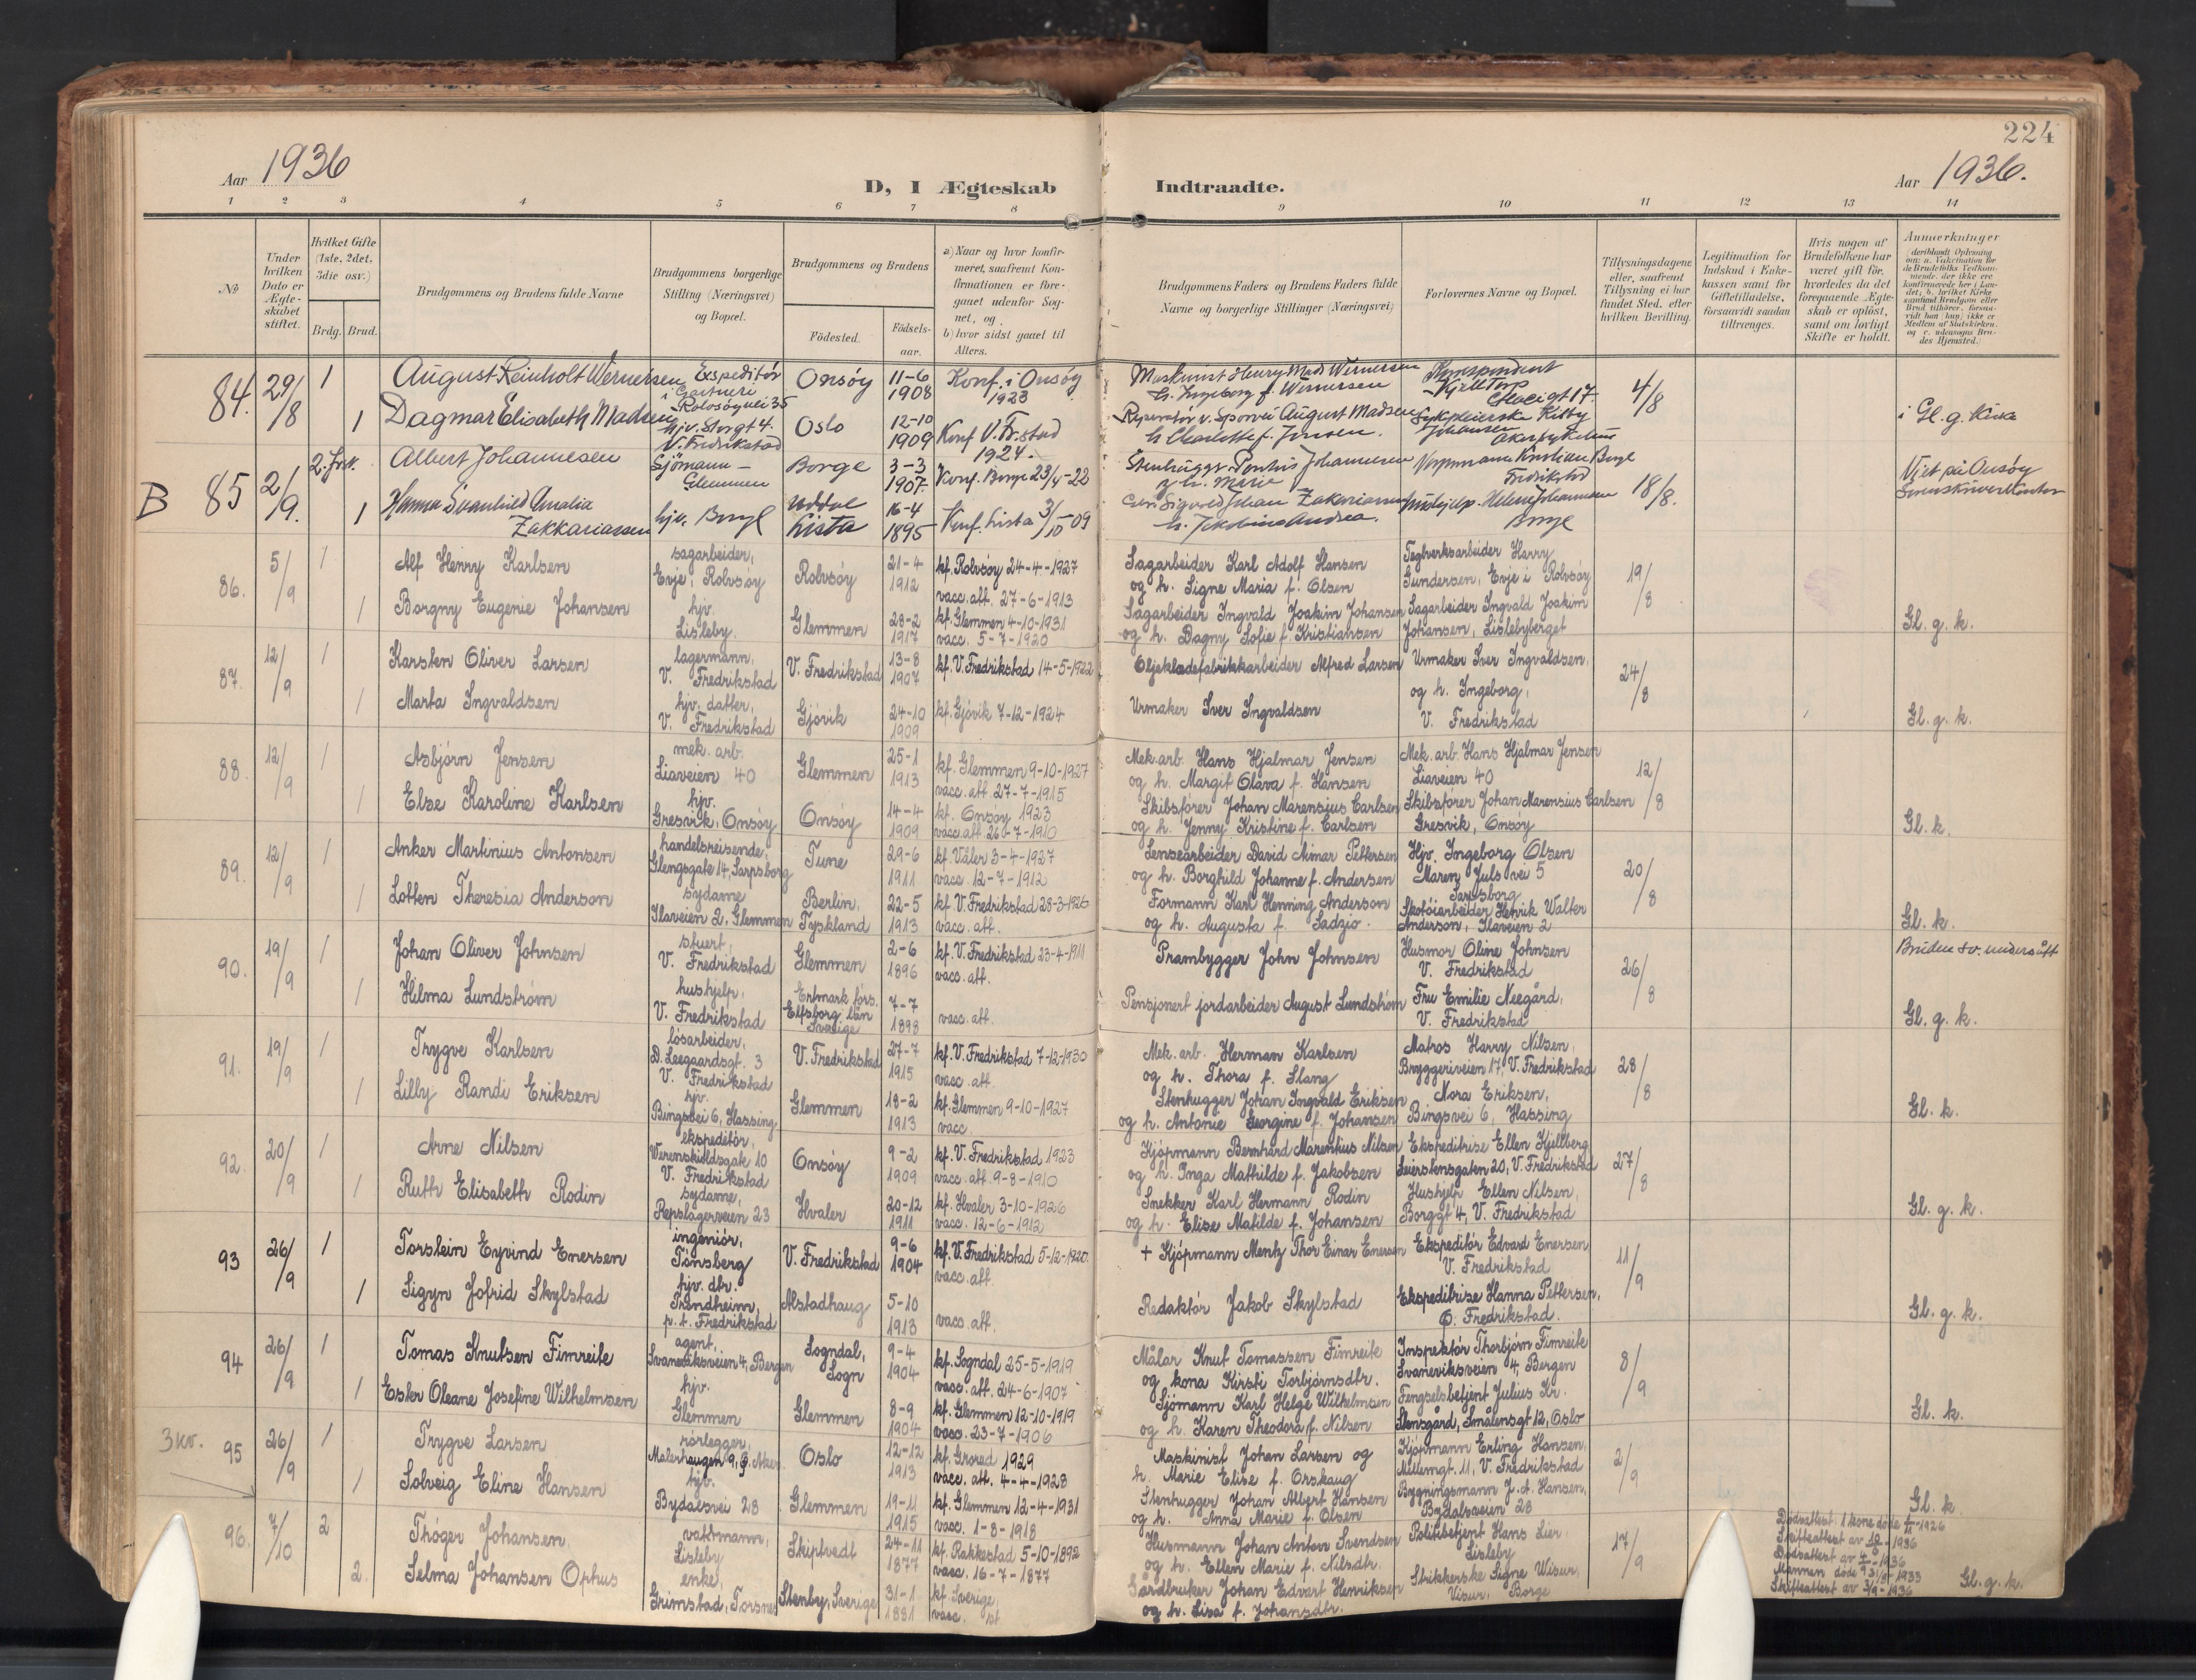 224
Aar 1936
D, I Ægteskab Indtraadte.
Aar 1936.
1 2 3 4 5 6 7 8 9 10 11 12 13 14
No
Under hvilken Dato er Ægteskabet stiftet.
Hvilket Gifte (1ste, 2det, 3die osv.)
Brdg. Brud.
Brudgommens og Brudens fulde Navne
Brudgommens borgerlige Stilling (Næringsvei) og Bopæl.
Brudgommens og Brudens
Födested.
Födsels-aar.
a) Naar og hvor konfirmeret, saafremt Konfirmationen er foregaaet udenfor Sognet, og
b) hvor sidst gaael til Alters.
Brudgommens Faders og Brudens Faders fulde Navne og borgerlige Stillinger (Næringsvei)
Forlovernes Navne og Bopæl.
Tillysningsdagene eller, saafremt Tillysning ei har fundet Sted, efter hvilken Bevilling.
Legitimation for Indskud i Enkekassen samt for Giftetilladelse, forsaavidt saadan tiltrænges.
Hvis nogen af Brudefolkene har været gift för, hvorledes da det foregaaende Ægteskab er oplöst, samt om lovligt Skifte er holdt.
Anmerkninger
84. 29/8 1 August Reinholt Wernersen Expeditör i Gartneri Rolvsöyvei 35 Onsöy 11-6 1908 Konf. i Onsöy 1923 Maskinist Henry Mads Wernersen h. Ingeborg f. Wernersen Korrespondent Kjell Torp 4/8
1 Dagmar Elisabeth Madsen hjv. Storgt 4. V. Fredrikstad Oslo 12-10 1909 Konf V. Fr.stad 1924. Reparatör v. Sporvei August Madsen h. Charlotte f. Jensen. Johansen i Gl. g. Kirke
B 85 2/9. 2. Albert Johannesen Sjömann - Glemmen Borge 3-3 1907. Konf. Borge 23/4-22 Johannesen og h. Marie Kristian Borge Fredrikstad 18/8. Viet på Onsöy Sorenskriverkontor
1 Hanna Svanhild Amalia Zakkariassen hjv. Borge Lista 16-4 1895 Konf. Lista 3/10-09 Sigvald Johan Zakariassen h. Jakobine Andrea. Helene Johannesen Borge
86. 5/9 1 Alf Henry Karlsen sagarbeider, Evje, Rolvsöy Rolvsöy 21-4 1912 kf. Rolvsöy 24-4-1927 vacc. att. 27-6-1913 Sagarbeider Karl Adolf Hansen og h. Signe Maria f. Olsen Teglverksarbeider Harry Gundersen, Evje i Rolvsöy 19/8
1 Borgny Eugenie Johansen hjv. Lisleby. Glemmen 28-2 1917 kf. Glemmen 4-10-1931 vacc. 5-7-1920 Sagarbeider Ingvald Joakim Johansen og h. Dagny Sofie f. Kristiansen Sagarbeider Ingvald Joakim Johansen, Lislebyberget Gl. g. k.
87. 12/9 1 Karsten Oliver Larsen lagermann, V. Fredrikstad V. Fredrikstad 13-8 1907 kf. V. Fredrikstad 14-5-1922 Oljeklædefabrikkarbeider Alfred Larsen Urmaker Iver Ingvaldsen, og h. Ingeborg, V. Fredrikstad 24/8
1 Marta Ingvaldsen hjv. datter, V. Fredrikstad Gjövik 24-10 1909 kf. Gjövik 7-12-1924 Urmaker Iver Ingvaldsen Gl. g. k.
88. 12/9 1 Asbjörn Jensen mek. arb. Liaveien 40 Glemmen 25-1 1913 kf. Glemmen 9-10-1927 vacc. att. 27-7-1915 Mek. arb. Hans Hjalmar Jensen og h. Margit Olava f. Hansen Mek. arb. Hans Hjalmar Jensen Liaveien 40 12/8
1 Else Karoline Karlsen hjv. Gresvik, Onsöy Onsöy 14-4 1909 kf. Onsöy 1923 vacc. att. 26-7-1910 Skibsförer Johan Marensius Carlsen og h. Jenny Kristine f. Carlsen Skibsförer Johan Marensius Carlsen Gresvik, Onsöy Gl. k.
89. 12/9 1 Anker Martinius Antonsen handelsreisende, Glengsgate 14, Sarpsborg Tune 29-6 1911 kf. Våler 3-4-1927 vacc. 12-7-1912 Lensearbeider David Aimar Pettersen og h. Borghild Johanne f. Andersen Hjv. Ingeborg Olsen Maren Juls vei 5 Sarpsborg 20/8
1 Lotten Theresia Anderson sydame Ilaveien 2, Glemmen Berlin, Tyskland 22-5 1913 kf. V. Fredrikstad 28-3-1926 vacc. att. Formann Karl Henning Anderson og h. Augusta f. Sadzio. Skotöiarbeider Henrik Walter Anderson, Ilaveien 2 Gl. k.
Bruden sv. undersått
90. 19/9 1 Johan Oliver Johnsen stuert, V. Fredrikstad Glemmen 2-6 1896 kf. V. Fredrikstad 23-4-1911 vacc. att. Prambygger John Johnsen Husmor Oline Johnsen V. Fredrikstad 26/8
1 Hilma Lundström hushjelp, V. Fredrikstad Ertmark förs. Elfsborg län Sverige 7-7 1898 vacc. att. Pensjonert jordarbeider August Lundström Fru Emilie Neegård, V. Fredrikstad Gl. g. k.
91. 19/9 1 Trygve Karlsen lösarbeider, D. Leegaardsgt. 3 V. Fredrikstad V. Fredrikstad 27-7 1915 kf. V. Fredrikstad 7-12-1930 vacc. att. Mek. arb. Herman Karlsen og h. Thora f. Slang Matros Harry Nilsen, Bryggeriveien 17, V. Fredrikstad 28/8
1 Lilly Randi Eriksen hjv. Bingsvei 6, Hassing Glemmen 18-2 1913 kf. Glemmen 9-10-1927 vacc. Stenhugger Johan Ingvald Eriksen og h. Antonie Georgine f. Johansen Nora Eriksen, Bingsvei 6, Hassing Gl. k.
92. 20/9 1 Arne Nilsen ekspeditör, Werenskioldsgate 10 V. Fredrikstad Onsöy 9-2 1909 kf. V. Fredrikstad 1923 vacc. att. 9-8-1910 Kjöpmann Bernhard Marentius Nilsen og h. Inga Mathilde f. Jakobsen Ekspeditrise Ellen Kjellberg Leierstensgaten 20, V. Fredrikstad 27/8
1 Ruth Elisabeth Rodin sydame, Repslagerveien 23 Hvaler 20-12 1911 kf. Hvaler 3-10-1926 vacc. 12-6-1912 Snekker Karl Hermann Rodin og h. Elise Matilde f. Johansen Hushjelp Ellen Nilsen, Borggt 4, V. Fredrikstad Gl. g. k.
93 26/9 1 Torstein Eyvind Enersen ingeniör, Tönsberg V. Fredrikstad 9-6 1904 kf. V. Fredrikstad 5-12-1920 vacc. att. + Kjöpmann Mentz Thor Einar Enersen Ekspeditör Edvard Enersen V. Fredrikstad 11/9
1 Sigyn Jofrid Skylstad hjv. dtr. Trondheim, p.t. Fredrikstad Alstadhaug 5-10 1913 vacc. att. Redaktör Jakob Skylstad Ekspeditrise Hanna Pettersen, Ö. Fredrikstad. Gl. g. k.
94 26/9 1 Tomas Knutsen Fimreite agent, Svaneviksveien 4, Bergen Sogndal, Sogn 9-4 1904 kf. Sogndal 25-5-1919 vacc. att. 24-6-1907 Målar Knut Tomassen Fimreite og kona Kirsti Torbjörnsdtr. Inspektör Thorbjörn Fimreite Svaneviksveien 4, Bergen 8/9
1 Ester Oleane Josefine Wilhelmsen hjv. Glemmen Glemmen 8-9 1904 kf. Glemmen 12-10-1919 vacc. 23-7-1906 Sjömann Karl Helge Wilhelmsen og h. Karen Theodora f. Nilsen Fengselsbetjent Julius Kr. Stensgård, Smålensgt 12, Oslo Gl. k.
3 kv. 95 26/9 1 Trygve Larsen rörlegger, Malerhaugen 9, Ö. Aker. Oslo 12-12 1913 kf. Grorud 1929 vacc. att. 4-4-1928 Maskinist Johan Larsen og h. Marie Elise f. Orskaug Kjöpmann Erling Hansen, Mellemgt. 11, V. Fredrikstad 2/9
1 Solveig Eline Hansen hjv. Bydalsvei 28 Glemmen 19-11 1915 kf. Glemmen 12-4-1931 vacc. 1-8-1918 Stenhugger Johan Albert Hansen og h. Anna Marie f. Olsen Bygningsmann J. A. Hansen, Bydalsveien 28 Gl. k
96. 7/10 2 Thöger Johansen vaktmann, Lisleby Skiptvedt 24-11 1877 kf. Rakkestad 5-10-1892 vacc. 16-7-1877 Husmann Johan Anton Svendsen og h. Ellen Marie f. Nilsdtr. Politibetjent Hans Lier, Lisleby 17/9
Dödsattest. 1 kone döde 1/11-1926
Skifteattest av 10/8-1936
Dödsattest av 4/9-1936
Mannen döde 3/8-1933
Skifteattest av 3/9-1936
2. Selma Johansen Ophus enke, Grimstad, Torsnes Stenby, Sverige 31-1 1881 kf. Sverige, vacc. Gårdbruker Johan Edvart Henriksen og h. Lisa f. Johansdtr. Strikkerske Signe Wisur, Visur, Borge Gl. g. k.